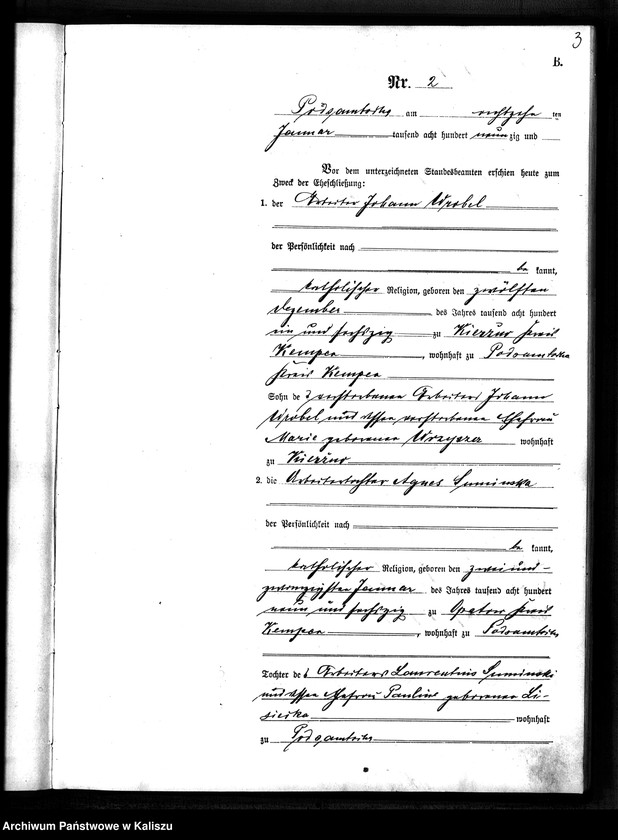 3
B.
Nr. 2
Podsamtsche am achtzehn ten
Januar tausend acht hundert neunzig und
Vor dem unterzeichneten Standesbeamten erschien heute zum
Zweck der Eheschließung:
1. der Arbeiter Johann Wrobel
der Persönlichkeit nach
be kannt,
katholischer Religion, geboren den zwölften
Dezember des Jahres tausend acht hundert
ein und sechszig zu Kreis
Kempen, wohnhaft zu
Kreis Kempen
Sohn des verstorbenen Arbeiters Johann
Wrobel und dessen verstorbene Ehefrau
Marie geborenen wohnhaft
zu
2. die Arbeitertochter Agnes Suminska
der Persönlichkeit nach
be kannt,
katholischer Religion, geboren den zwei und-
zwanzigsten Januar des Jahres tausend acht hundert
neun und sechszig zu Opatow Kreis
Kempen, wohnhaft zu
Tochter des Arbeiters Laurentius Suminski
und dessen Ehefrau Pauline geborenen Li-
siecka wohnhaft
zu
Archiwum Państwowe w Kaliszu